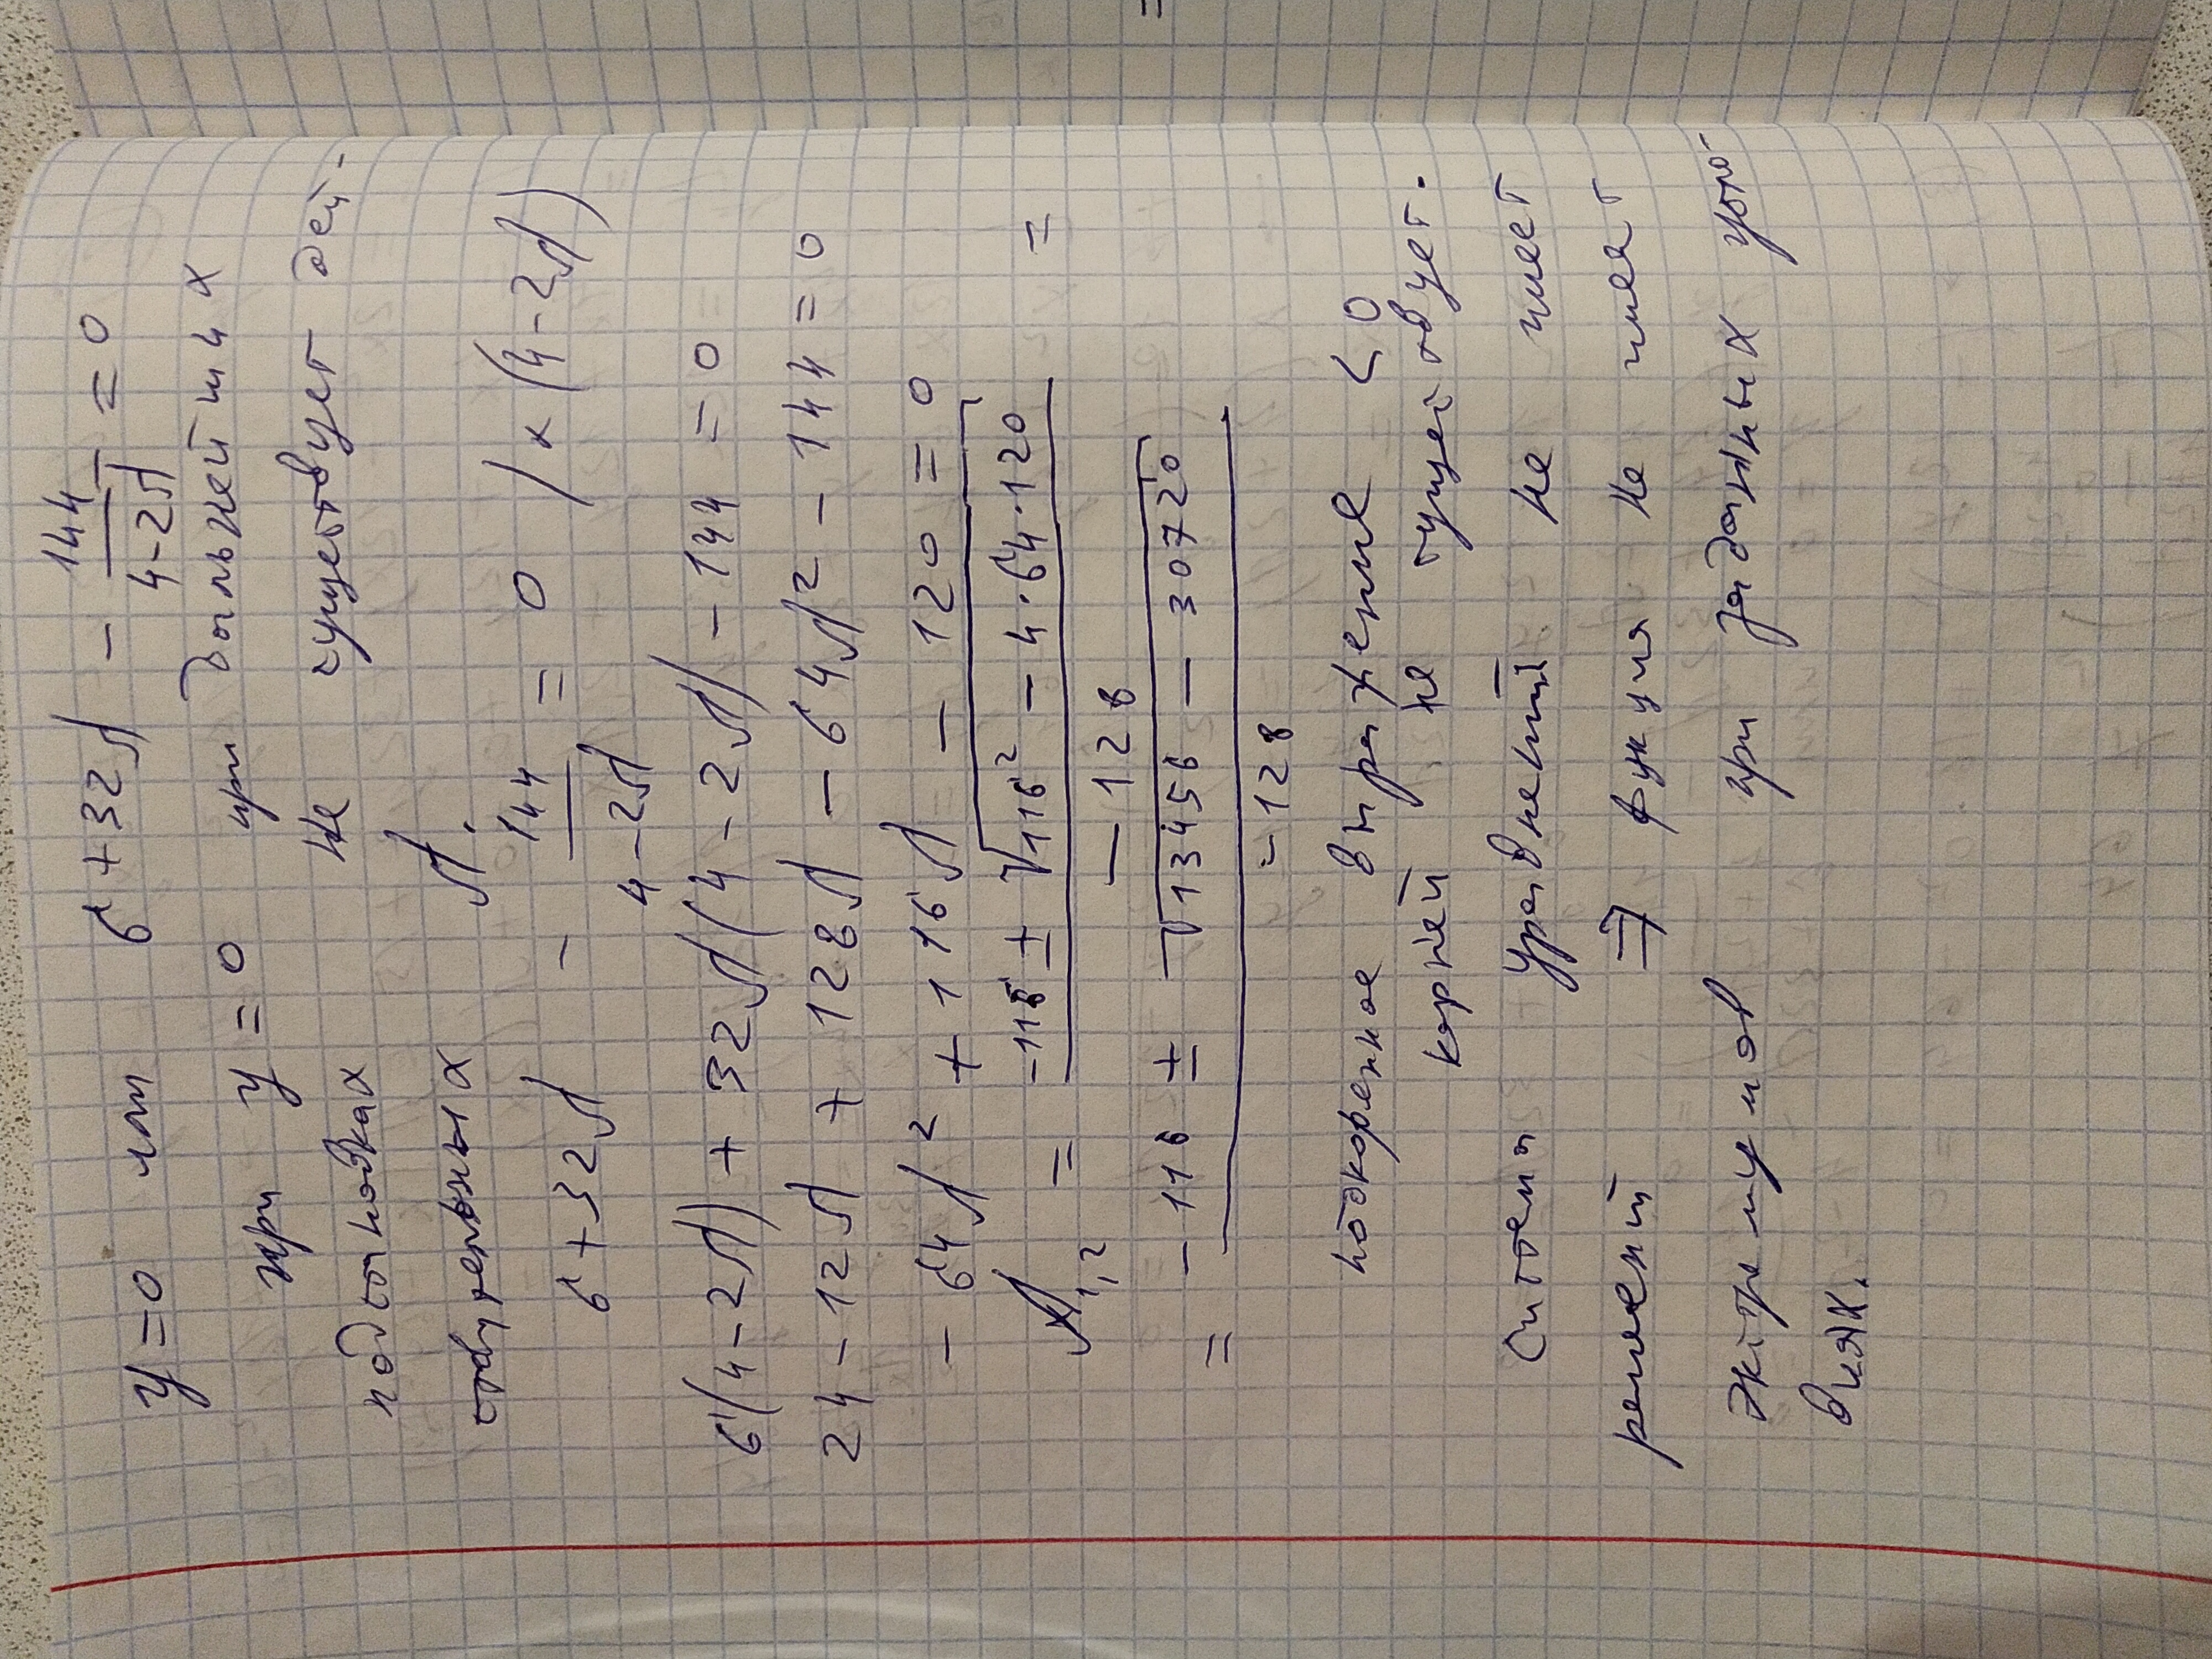 y=0 или 6+32λ - 144/(4-2λ) = 0
при y=0 при дальнейших
подстановках не существует дей-
ствительных λ.
6+32λ - 144/(4-2λ) = 0 /×(4-2λ)
6(4-2λ) + 32λ(4-2λ) - 144 = 0
24-12λ + 128λ - 64λ² - 144 = 0
-64λ² + 116λ - 120 = 0
λ1,2 = (-116 ± √(116² - 4·64·120)) / -128 =
= (-116 ± √(13456 - 30720)) / -128
подкоренное выражение < 0
корней не существует.
система уравнений не имеет
решений ⇒ функция не имеет
экстремумов при заданных усло-
виях.